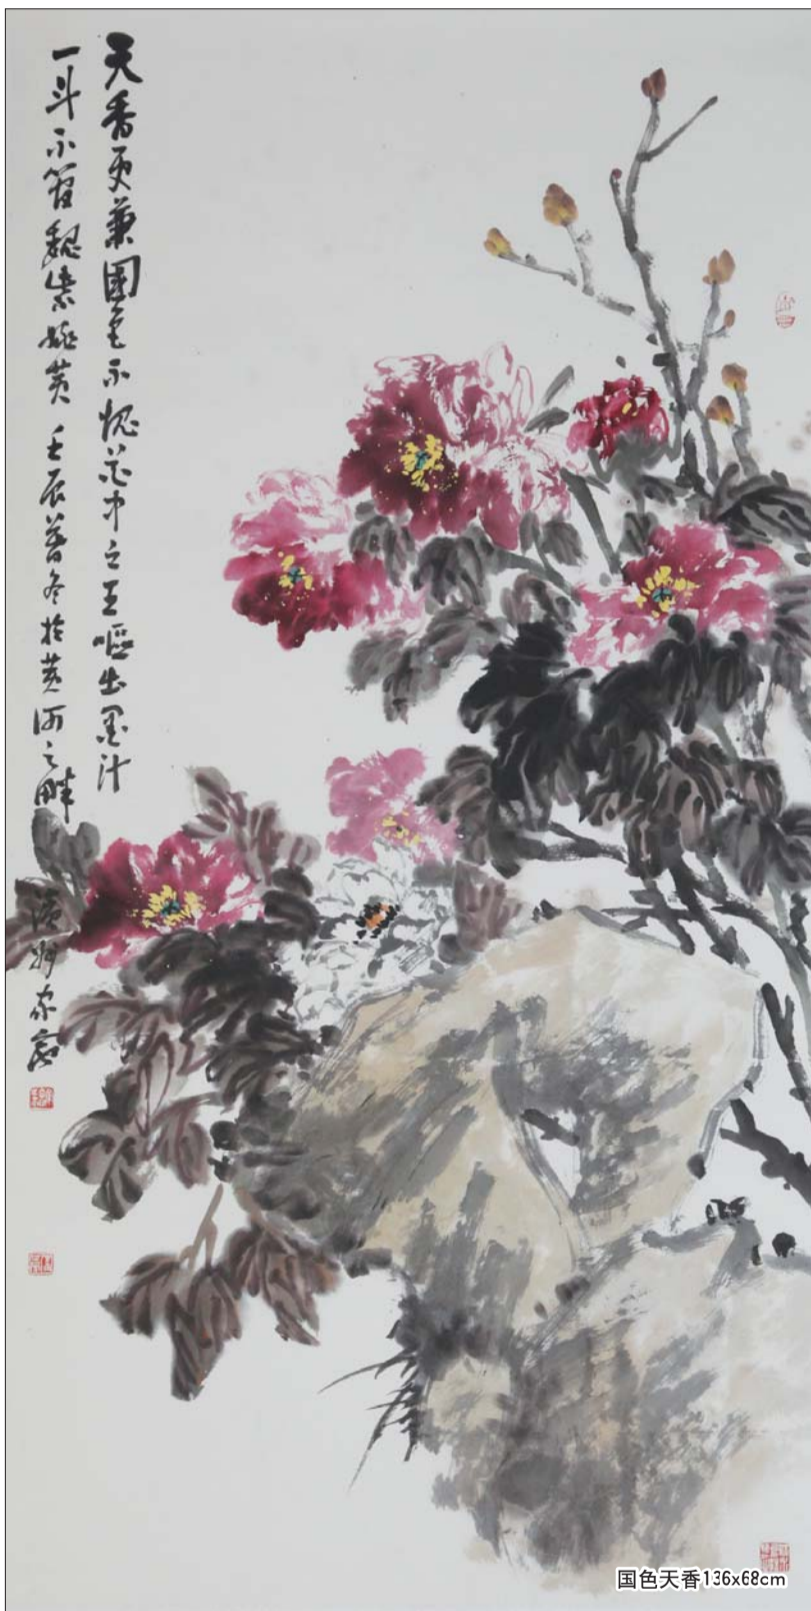 天香更兼國色不愧花中之王嘔出墨汁
一斗不管魏紫姚黃 壬辰暮冬於黃河之畔
濱州
国色天香136x68cm